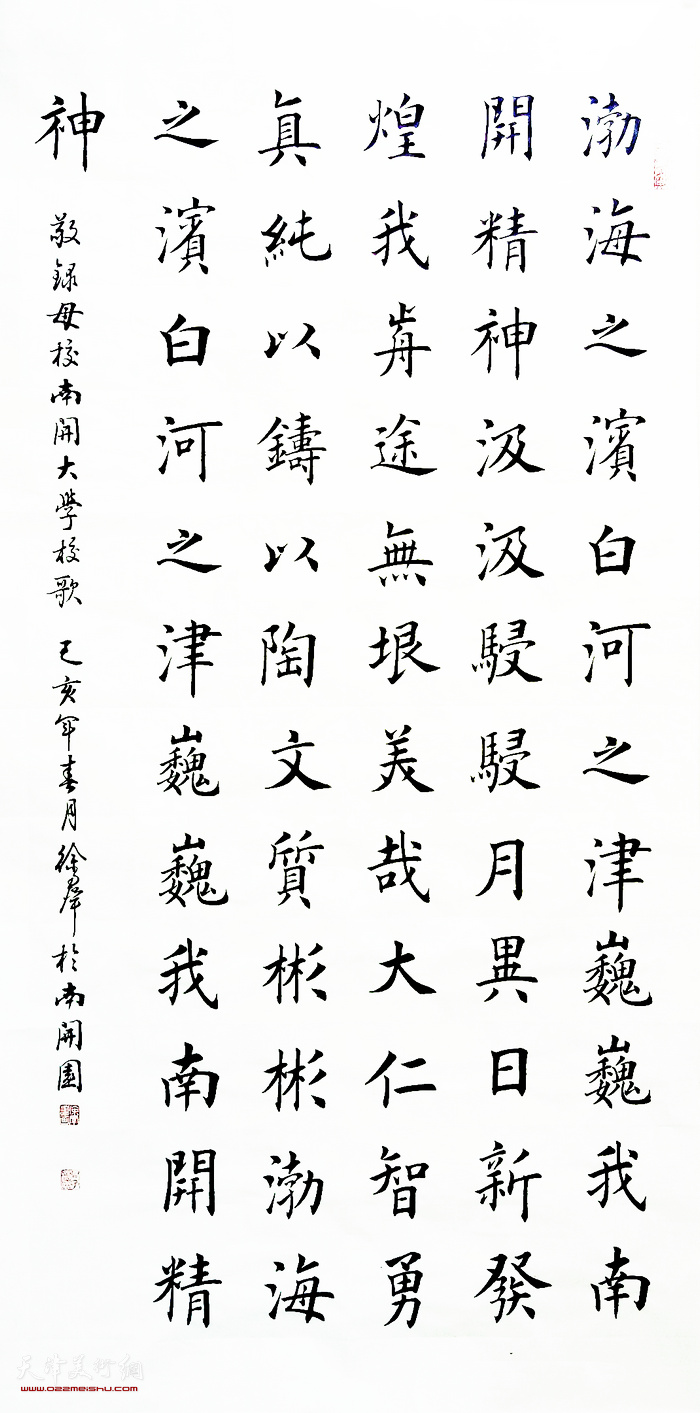 渤海之濱白河之津巍巍我南
開精神汲汲駸駸月異日新發
煌我前途無垠美哉大仁智勇
真純以鑄以陶文質彬彬渤海
之濱白河之津巍巍我南開精
神
敬録母校南開大學校歌 己亥年春月徐羣於南開園
天津美術網
www.022meishu.com